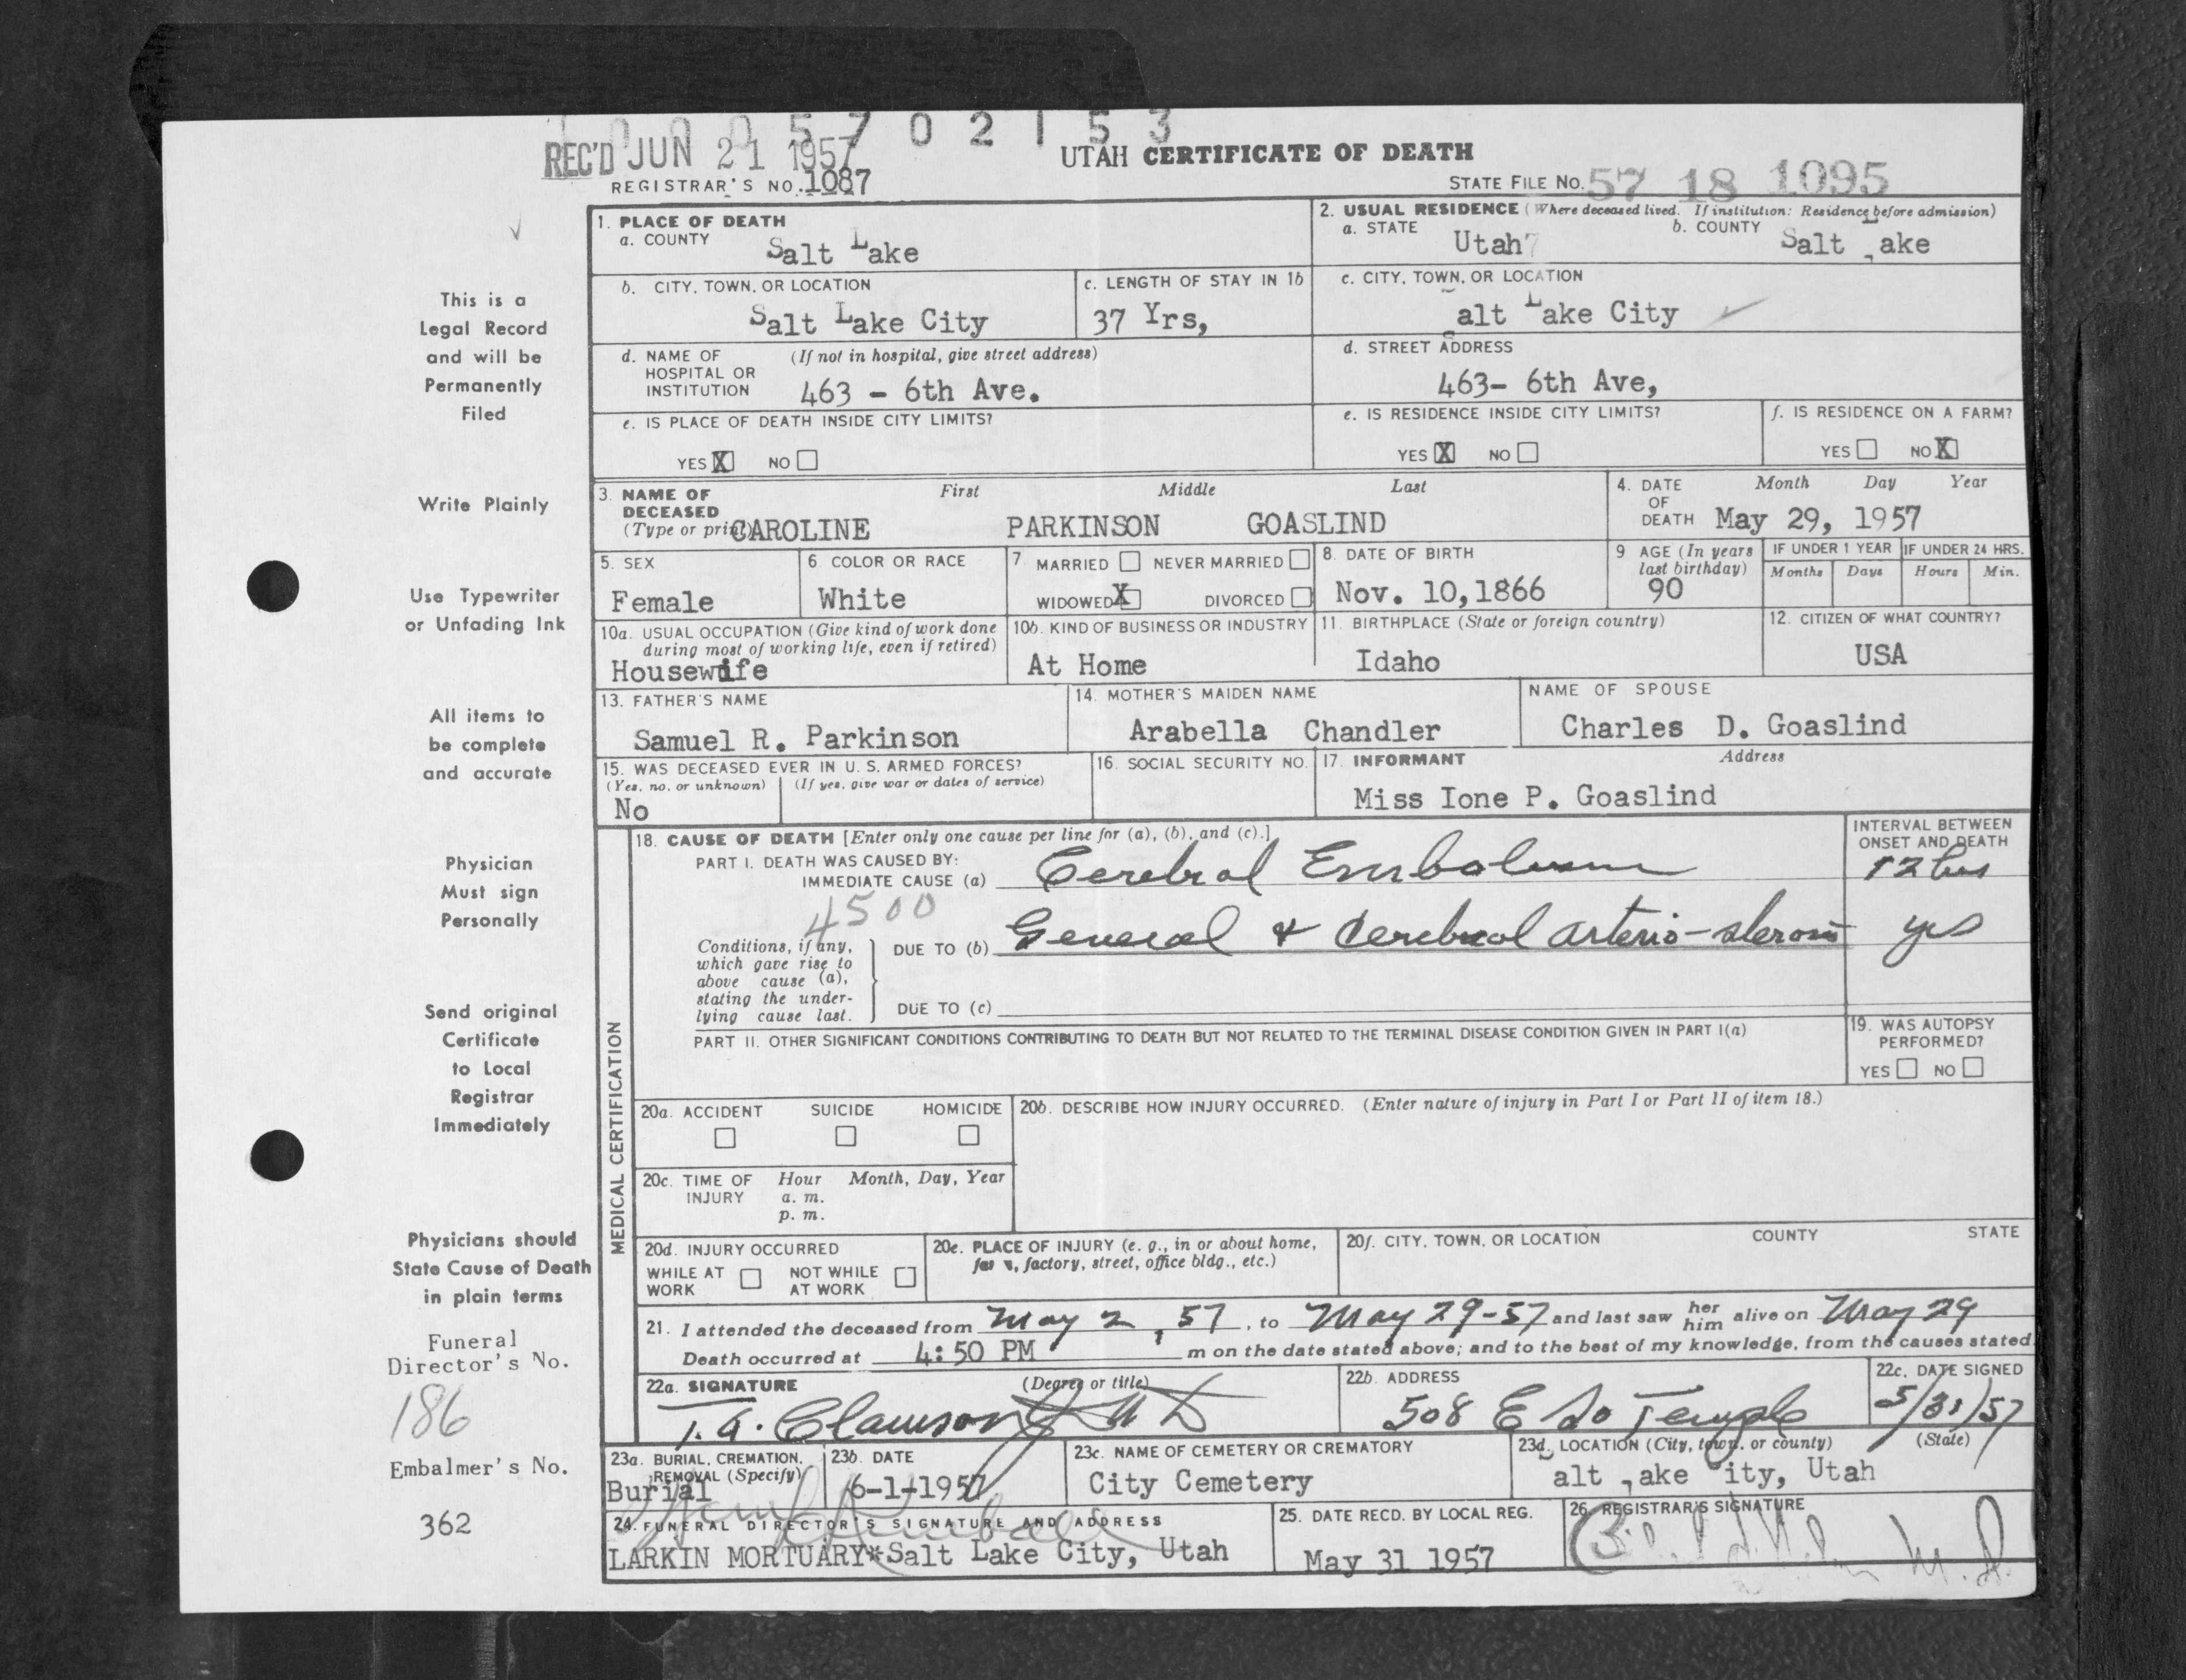 1 0 0 0 5 7 0 2 1 5 3
REC'D JUN 21 1957
UTAH CERTIFICATE OF DEATH
REGISTRAR'S NO. 1087
STATE FILE NO. 57 18 1095
This is a
Legal Record
and will be
Permanently
Filed
Write Plainly
Use Typewriter
or Unfading Ink
All items to
be complete
and accurate
Physician
Must sign
Personally
Send original
Certificate
to Local
Registrar
Immediately
Physicians should
State Cause of Death
in plain terms
Funeral
Director's No.
186
Embalmer's No.
362
1. PLACE OF DEATH
a. COUNTY
Salt Lake
2. USUAL RESIDENCE (Where deceased lived. If institution: Residence before admission)
a. STATE
Utah
b. COUNTY
Salt Lake
b. CITY, TOWN, OR LOCATION
Salt Lake City
c. LENGTH OF STAY IN 1b
37 Yrs,
c. CITY, TOWN, OR LOCATION
Salt Lake City
d. NAME OF HOSPITAL OR INSTITUTION (If not in hospital, give street address)
463 - 6th Ave.
d. STREET ADDRESS
463- 6th Ave,
e. IS PLACE OF DEATH INSIDE CITY LIMITS?
YES X NO
e. IS RESIDENCE INSIDE CITY LIMITS?
YES X NO
f. IS RESIDENCE ON A FARM?
YES NO X
3. NAME OF DECEASED (Type or print)
First Middle Last
CAROLINE PARKINSON GOASLIND
4. DATE OF DEATH
Month Day Year
May 29, 1957
5. SEX
Female
6 COLOR OR RACE
White
7. MARRIED NEVER MARRIED
WIDOWED X DIVORCED
8. DATE OF BIRTH
Nov. 10,1866
9 AGE (In years last birthday)
90
IF UNDER 1 YEAR
Months Days
IF UNDER 24 HRS.
Hours Min.
10a. USUAL OCCUPATION (Give kind of work done during most of working life, even if retired)
Housewife
10b. KIND OF BUSINESS OR INDUSTRY
At Home
11. BIRTHPLACE (State or foreign country)
Idaho
12. CITIZEN OF WHAT COUNTRY?
USA
13. FATHER'S NAME
Samuel R. Parkinson
14. MOTHER'S MAIDEN NAME
Arabella Chandler
NAME OF SPOUSE
Charles D. Goaslind
15. WAS DECEASED EVER IN U. S. ARMED FORCES?
(Yes, no, or unknown) (If yes, give war or dates of service)
No
16. SOCIAL SECURITY NO.
17. INFORMANT Address
Miss Ione P. Goaslind
MEDICAL CERTIFICATION
18. CAUSE OF DEATH [Enter only one cause per line for (a), (b), and (c).]
INTERVAL BETWEEN ONSET AND DEATH
PART I. DEATH WAS CAUSED BY:
IMMEDIATE CAUSE (a) Cerebral Embolism 12 hrs
4500
Conditions, if any, which gave rise to above cause (a), stating the underlying cause last.
DUE TO (b) General & Cerebral arterio-sclerosis yrs
DUE TO (c)
PART II. OTHER SIGNIFICANT CONDITIONS CONTRIBUTING TO DEATH BUT NOT RELATED TO THE TERMINAL DISEASE CONDITION GIVEN IN PART I(a)
19. WAS AUTOPSY PERFORMED?
YES NO
20a. ACCIDENT SUICIDE HOMICIDE
20b. DESCRIBE HOW INJURY OCCURRED. (Enter nature of injury in Part I or Part II of item 18.)
20c. TIME OF INJURY
Hour Month, Day, Year
a. m.
p. m.
20d. INJURY OCCURRED
WHILE AT WORK NOT WHILE AT WORK
20e. PLACE OF INJURY (e. g., in or about home, farm, factory, street, office bldg., etc.)
20f. CITY, TOWN, OR LOCATION COUNTY STATE
21. I attended the deceased from May 2, 57, to May 29-57 and last saw her him alive on May 29
Death occurred at 4:50 PM m on the date stated above; and to the best of my knowledge, from the causes stated.
22a. SIGNATURE (Degree or title)
T. A. Clawson Jr M D
22b. ADDRESS
508 E So Temple
22c. DATE SIGNED
5/31/57
23a. BURIAL, CREMATION, REMOVAL (Specify)
Burial
23b. DATE
6-1-1957
23c. NAME OF CEMETERY OR CREMATORY
City Cemetery
23d. LOCATION (City, town, or county) (State)
Salt Lake City, Utah
24. FUNERAL DIRECTOR'S SIGNATURE AND ADDRESS
LARKIN MORTUARY*Salt Lake City, Utah
25. DATE RECD. BY LOCAL REG.
May 31 1957
26. REGISTRAR'S SIGNATURE
M.D.